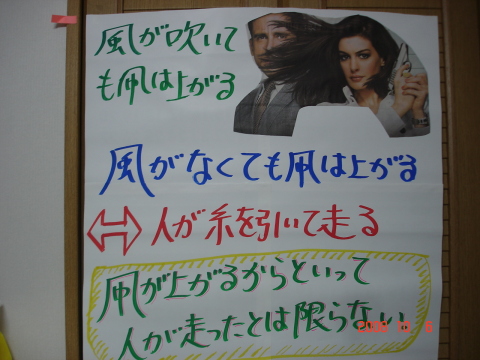 風が吹いて
も凧は上がる
風がなくても凧は上がる
⇔人が糸を引いて走る
凧が上がるからといって
人が走ったとは限らない